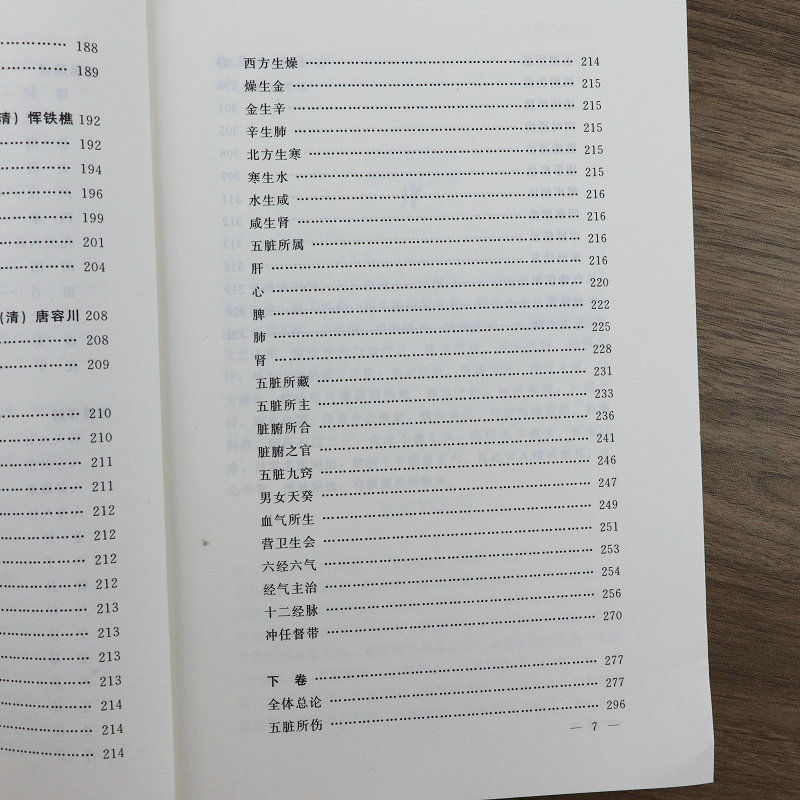 188
189
清）恽铁樵 192
192
194
196
199
201
204
（清）唐容川 208
208
209
210
210
211
211
212
212
212
212
213
213
213
213
214
214
214
西方生燥 214
燥生金 215
金生辛 215
辛生肺 215
北方生寒 215
寒生水 215
水生咸 216
咸生肾 216
五脏所属 216
肝 216
心 220
脾 222
肺 225
肾 228
五脏所藏 231
五脏所主 233
脏腑所合 236
脏腑之官 241
五脏九窍 246
男女天癸 247
血气所生 249
营卫生会 251
六经六气 253
经气主治 254
十二经脉 256
冲任督带 270
下 卷 277
全体总论 277
五脏所伤 296
— 7 —